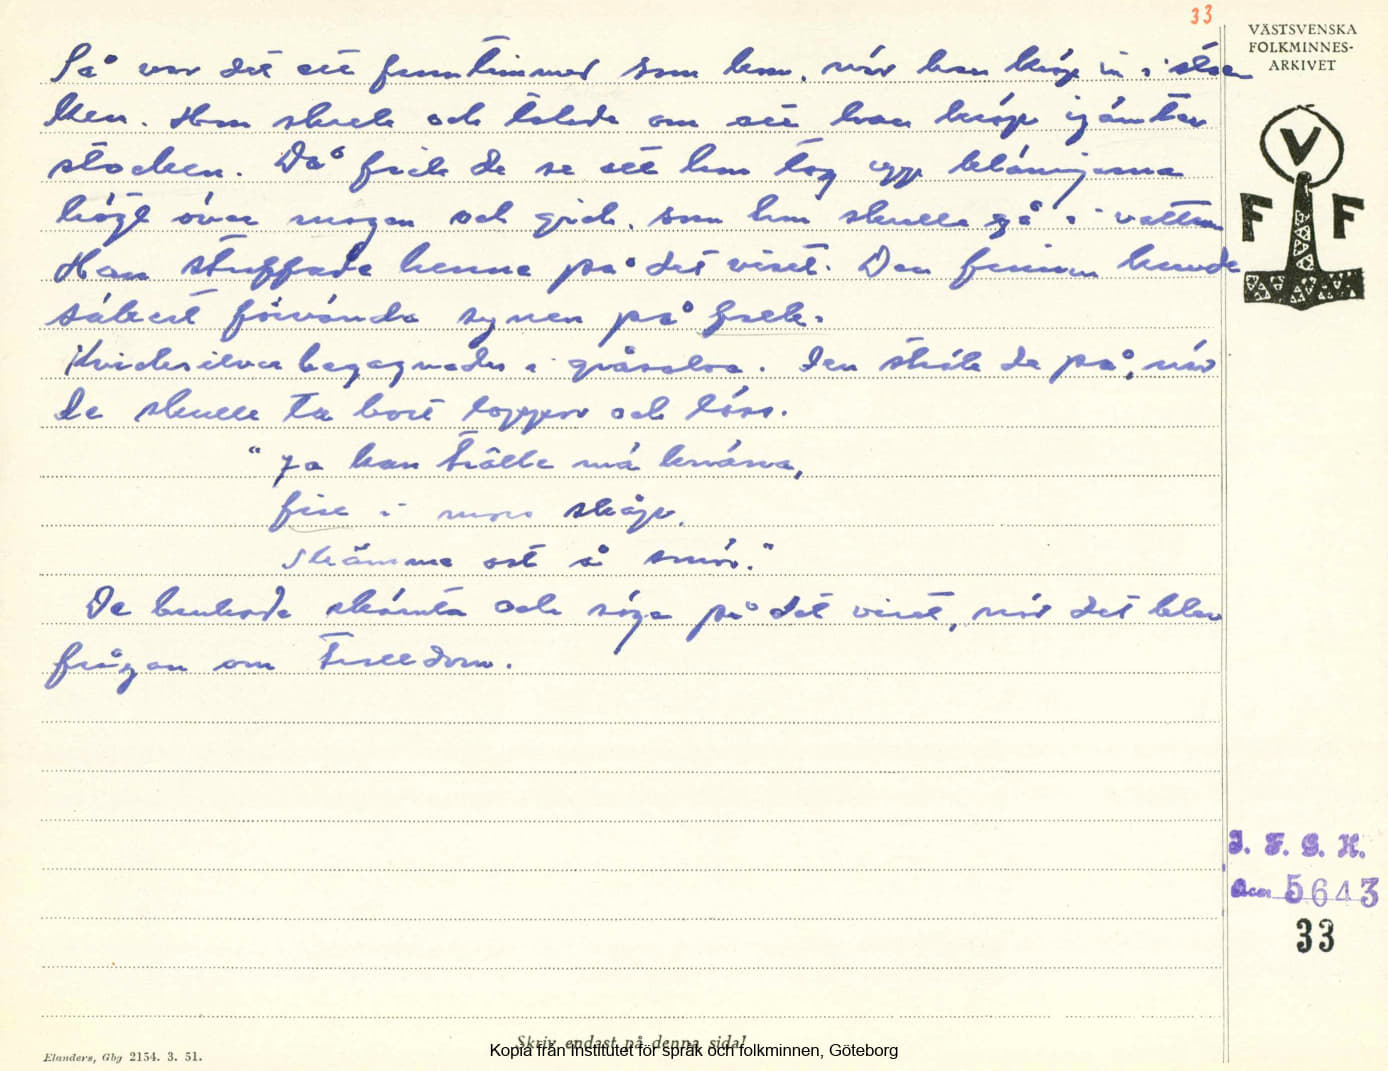 33
VÄSTSVENSKA
FOLKMINNES-
ARKIVET
Så var det ett fruntimmer som kom, när han kröp in i stoc
ken. Hon skrek och talade om att han kröp igämtar
stocken. Då fick de se att hon tog upp klänningarna
högt över magen och gick, som hon skulle gå i vatten
Han stuffade henne på det viset. Den finnen kunde
säkert förvända synen på folk.
Kvicksilver begagnades i gråsalva. Den strök de på, när
de skulle ta bort loppor och löss.
"Ja kan trolle må knäna,
fise i mors skåp,
skämme ost å smör."
De brukade skämta och säga på det viset, när det blev
frågan om trolldom.
V
F F
I. F. G. H.
Acc. 5643
33
Skriv endast på denna sida!
Kopia från Institutet för språk och folkminnen, Göteborg
Elanders, Gbg 2154. 3. 51.